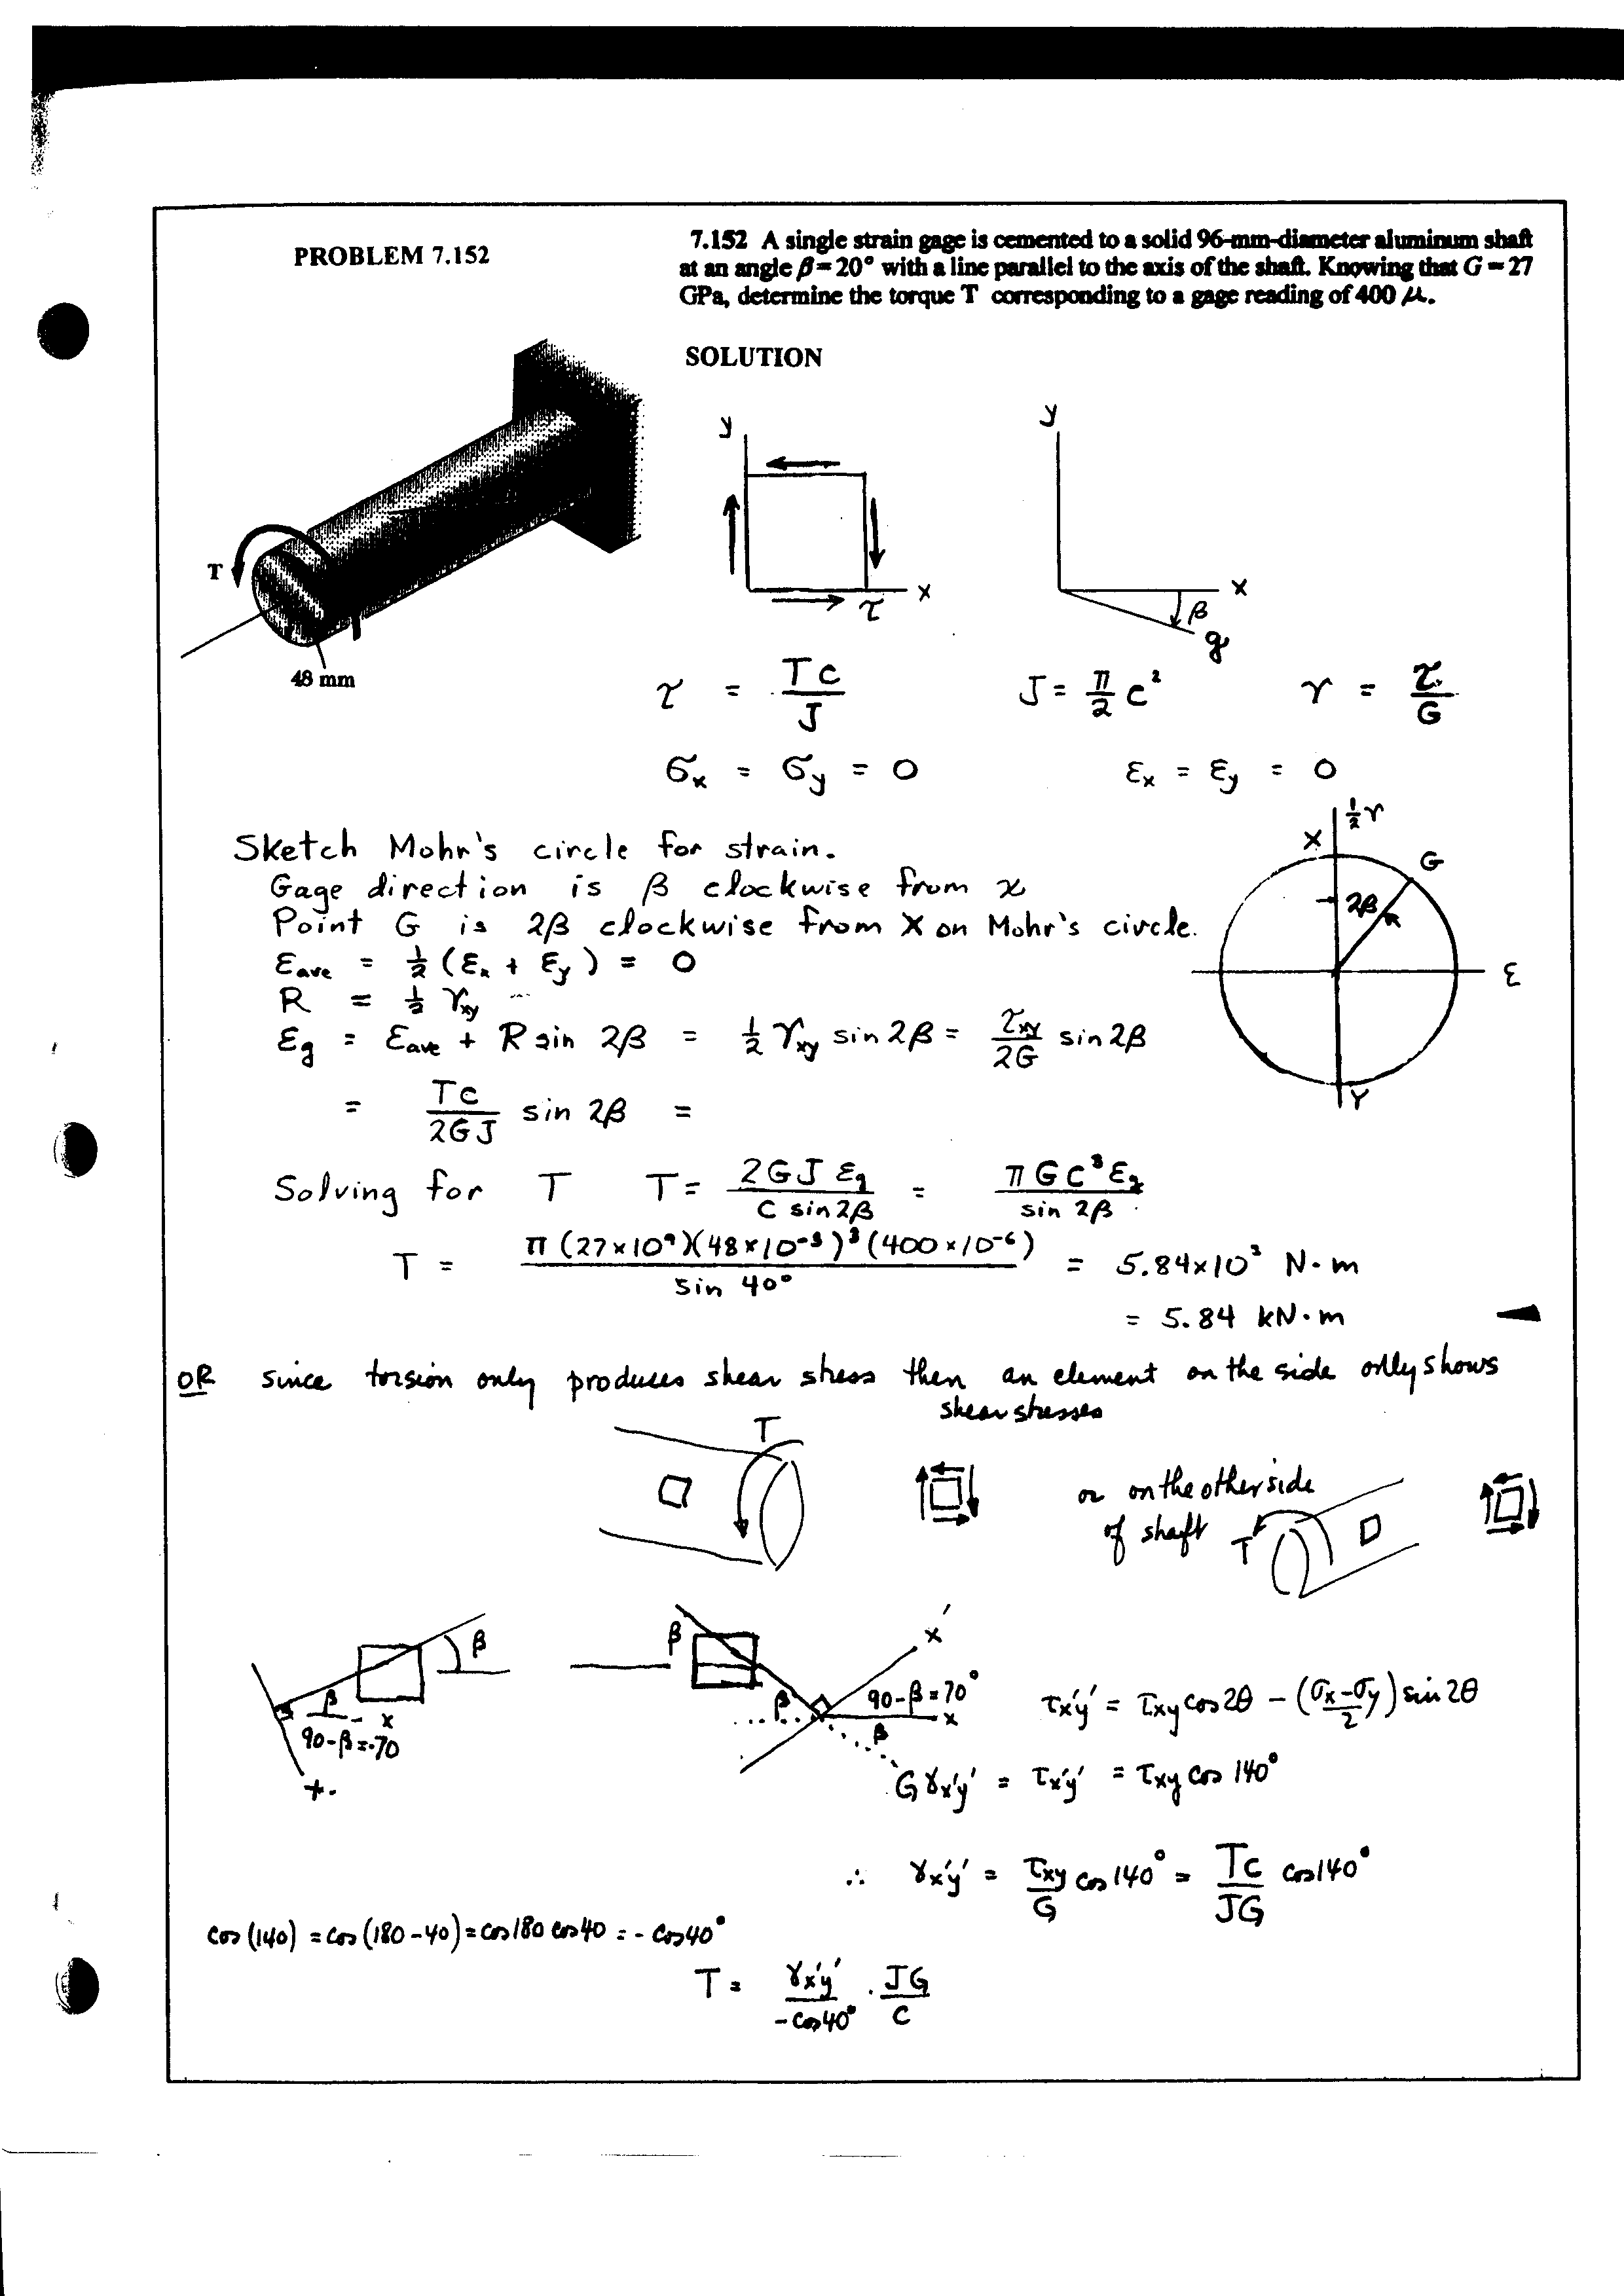 PROBLEM 7.152
7.152 A single strain gage is cemented to a solid 96-mm-diameter aluminum shaft
at an angle β = 20° with a line parallel to the axis of the shaft. Knowing that G = 27
GPa, determine the torque T corresponding to a gage reading of 400 μ.
SOLUTION
T
48 mm
y
x
τ
y
x
β
g
τ = Tc/J
J = π/2 c²
γ = τ/G
σx = σy = 0
εx = εy = 0
Sketch Mohr's circle for strain.
Gage direction is β clockwise from x
Point G is 2β clockwise from X on Mohr's circle.
½γ
X
G
2β
ε
Y
εave = ½ (εx + εy) = 0
R = ½ γxy
εg = εave + R sin 2β = ½ γxy sin 2β = τxy/2G sin 2β
= Tc/2GJ sin 2β =
Solving for T T = 2GJ εg / c sin 2β = π G c³ εg / sin 2β
T = π (27×10⁹)(48×10⁻³)³(400×10⁻⁶) / sin 40° = 5.84×10³ N·m
= 5.84 kN·m
OR since torsion only produces shear stress then an element on the side only shows
shear stresses
T
or on the other side
of shaft
T
β
β
x
90-β=-70
+.
β
β
x'
90-β=70°
x
β
τx'y' = τxy cos 2θ - (σx-σy / 2) sin 2θ
Gγx'y' = τx'y' = τxy cos 140°
∴ γx'y' = τxy/G cos 140° = Tc/JG cos 140°
cos (140) = cos (180-40) = cos 180 cos 40 = - cos 40°
T = γx'y' / -cos 40° · JG/c